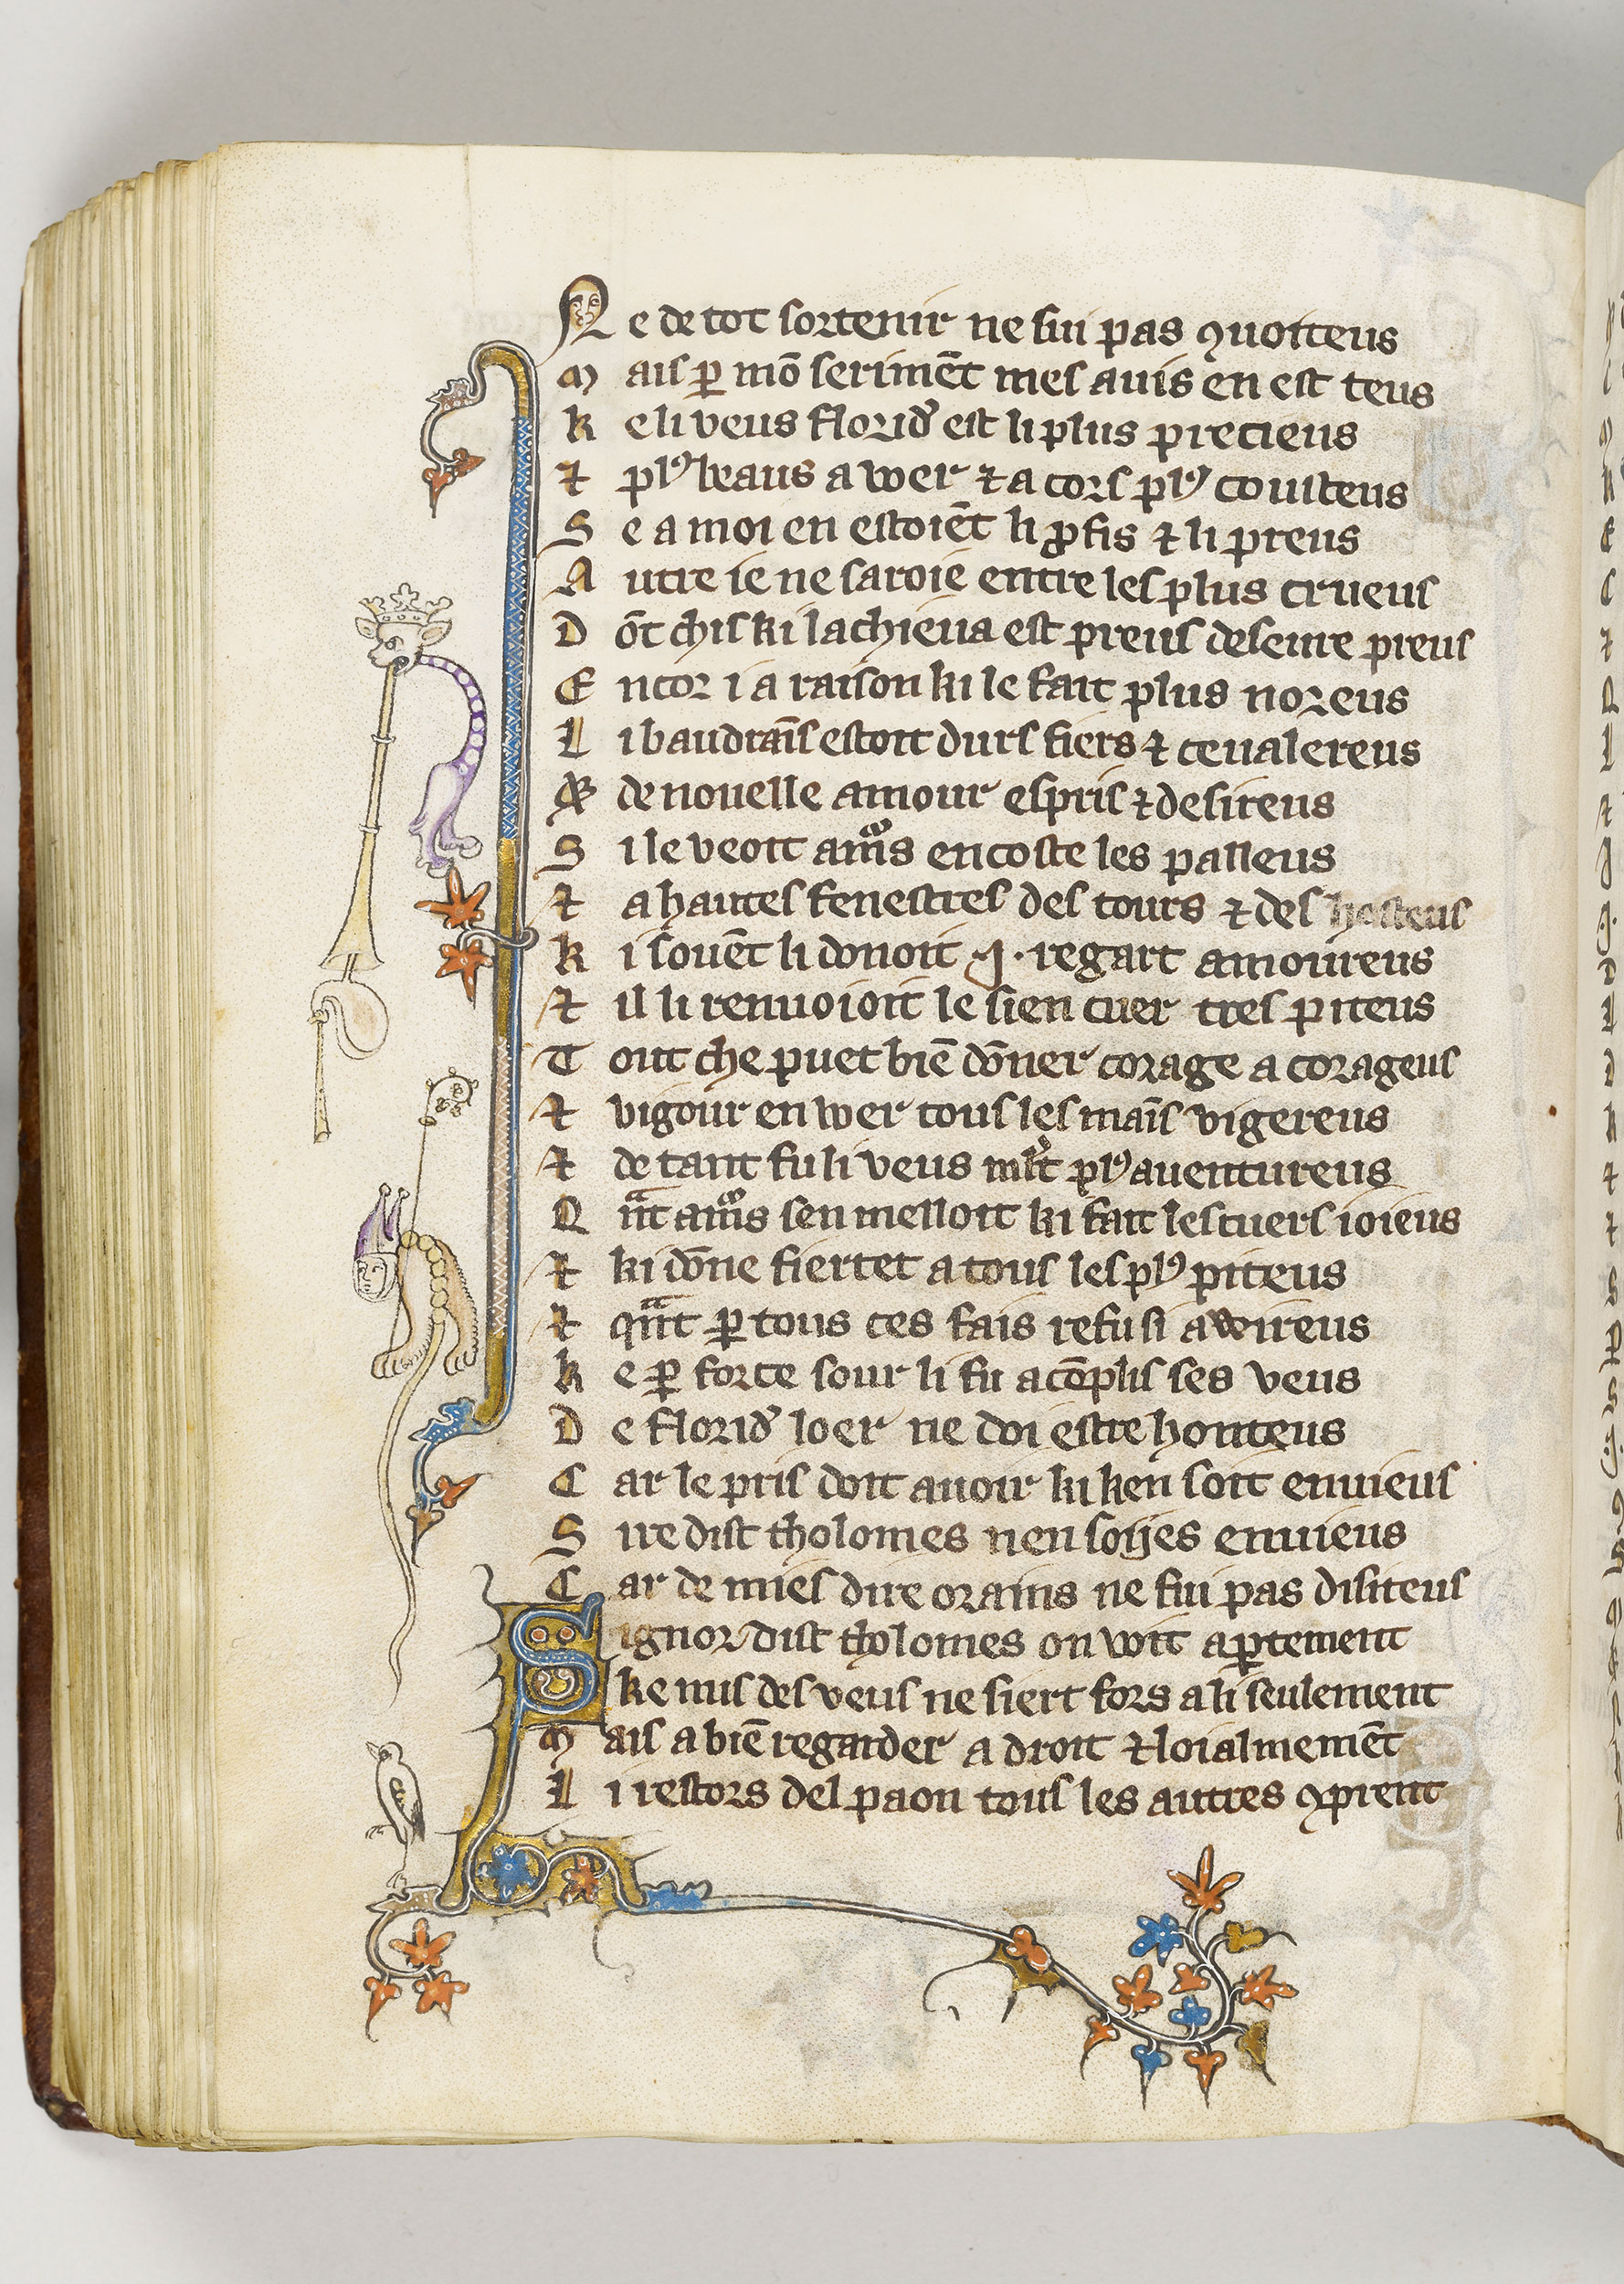 Ne de tot sortenir ne sui pas ꝯuoiteus
Mais ꝑ mō serimēt mes auis en est teus
Ke li veus florid̾ est li plus precieus
⁊ plꝰ beaus a wer ⁊ a cors plꝰ couiteus
Se a moi en estoiēt li ꝓfis ⁊ li preus
Autre ie ne saroie entre les plus crueus
Dōt chis ki lachieua est preus deseure preus
Encor i a raison ki le fait plus noreus
Li baudrāīs estoit durs fiers ⁊ ceualereus
de nouelle amour espris ⁊ desireus
Si le veoit am̊s encoste les palleus
⁊ a hautes fenestres des tours ⁊ des hosteus
Ki souēt li donoit .j. regart amoureus
⁊ il li renuoioit le sien cuer tres piteus
Tout che puet biē dōner corage a corageus
⁊ vigour en wer tous les māīs vigereus
⁊ de tant fu li veus ml̅t plꝰ auentureus
Qⁿt am̊s sen melloit ki fait les cuers ioieus
⁊ ki dōne fiertet a tous les plꝰ piteus
⁊ qⁿt ꝑ tous ces fais refu si awireus
Ke ꝑ force sour li fu acōplis ses veus
De florid̾ loer ne doi estre honteus
Car le pris doit auoir ki ken soit enuieus
Sire dist tholomes nen soijes enuieus
Car de miels dire orains ne fui pas disiteus
Signor dist tholomes on voit aꝑtement
ke nus des veus ne siert fors a li seulement
Mais a biē regarder a droit ⁊ loialmemēt
Li restors del paon tous les autres ꝯprent